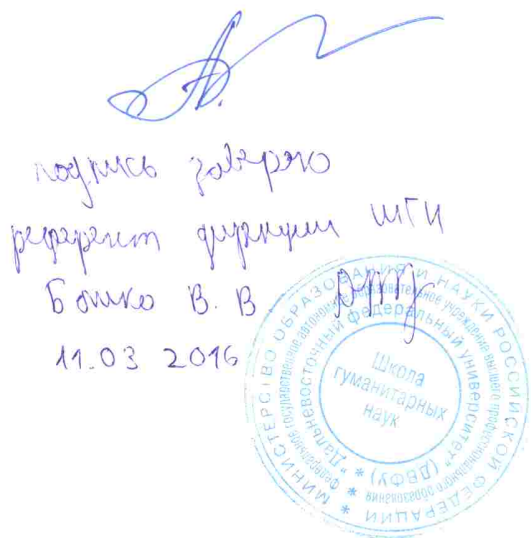 подпись заверяю
референт дирекции ШГН
В. В
11.03 2016
МИНИСТЕРСТВО ОБРАЗОВАНИЯ И НАУКИ РОССИЙСКОЙ ФЕДЕРАЦИИ *
Федеральное государственное автономное образовательное учреждение высшего профессионального образования *
"Дальневосточный федеральный университет" (ДВФУ) *
Школа
гуманитарных
наук